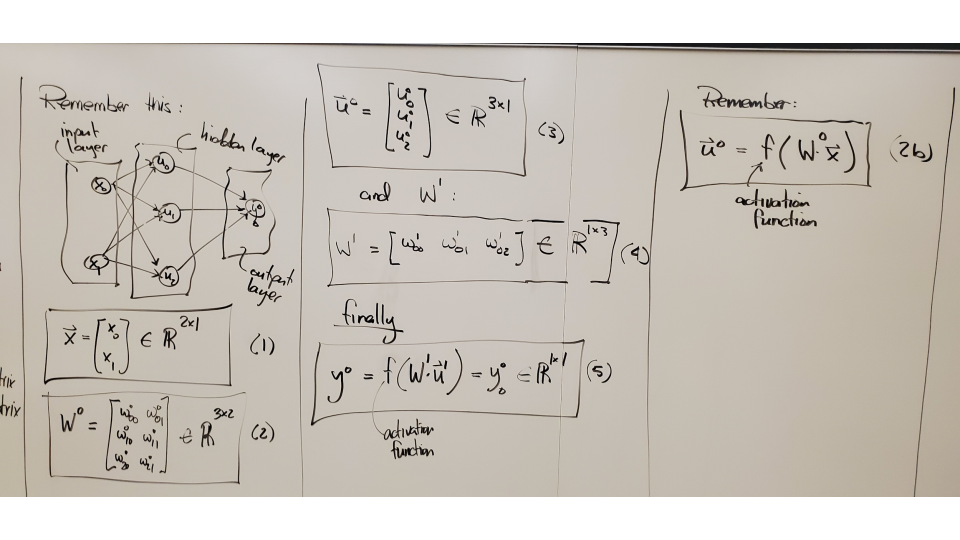 Remember this:
input layer
hidden layer
x₀
x₁
u₀
u₁
u₂
output layer
x⃗ = [x₀ x₁] ∈ ℝ²ˣ¹ (1)
W⁰ = [w⁰₀₀ w⁰₀₁
w⁰₁₀ w⁰₁₁
w⁰₂₀ w⁰₂₁] ∈ ℝ³ˣ² (2)
u⃗⁰ = [u⁰₀ u⁰₁ u⁰₂] ∈ ℝ³ˣ¹ (3)
and W¹:
W¹ = [w¹₀₀ w¹₀₁ w¹₀₂] ∈ ℝ¹ˣ³ (4)
finally
y⁰ = f(W¹·u⃗¹) = y⁰₀ ∈ ℝ¹ˣ¹ (5)
activation
function
Remember:
u⃗⁰ = f(W⁰·x⃗) (2b)
activation
function
trix
trix